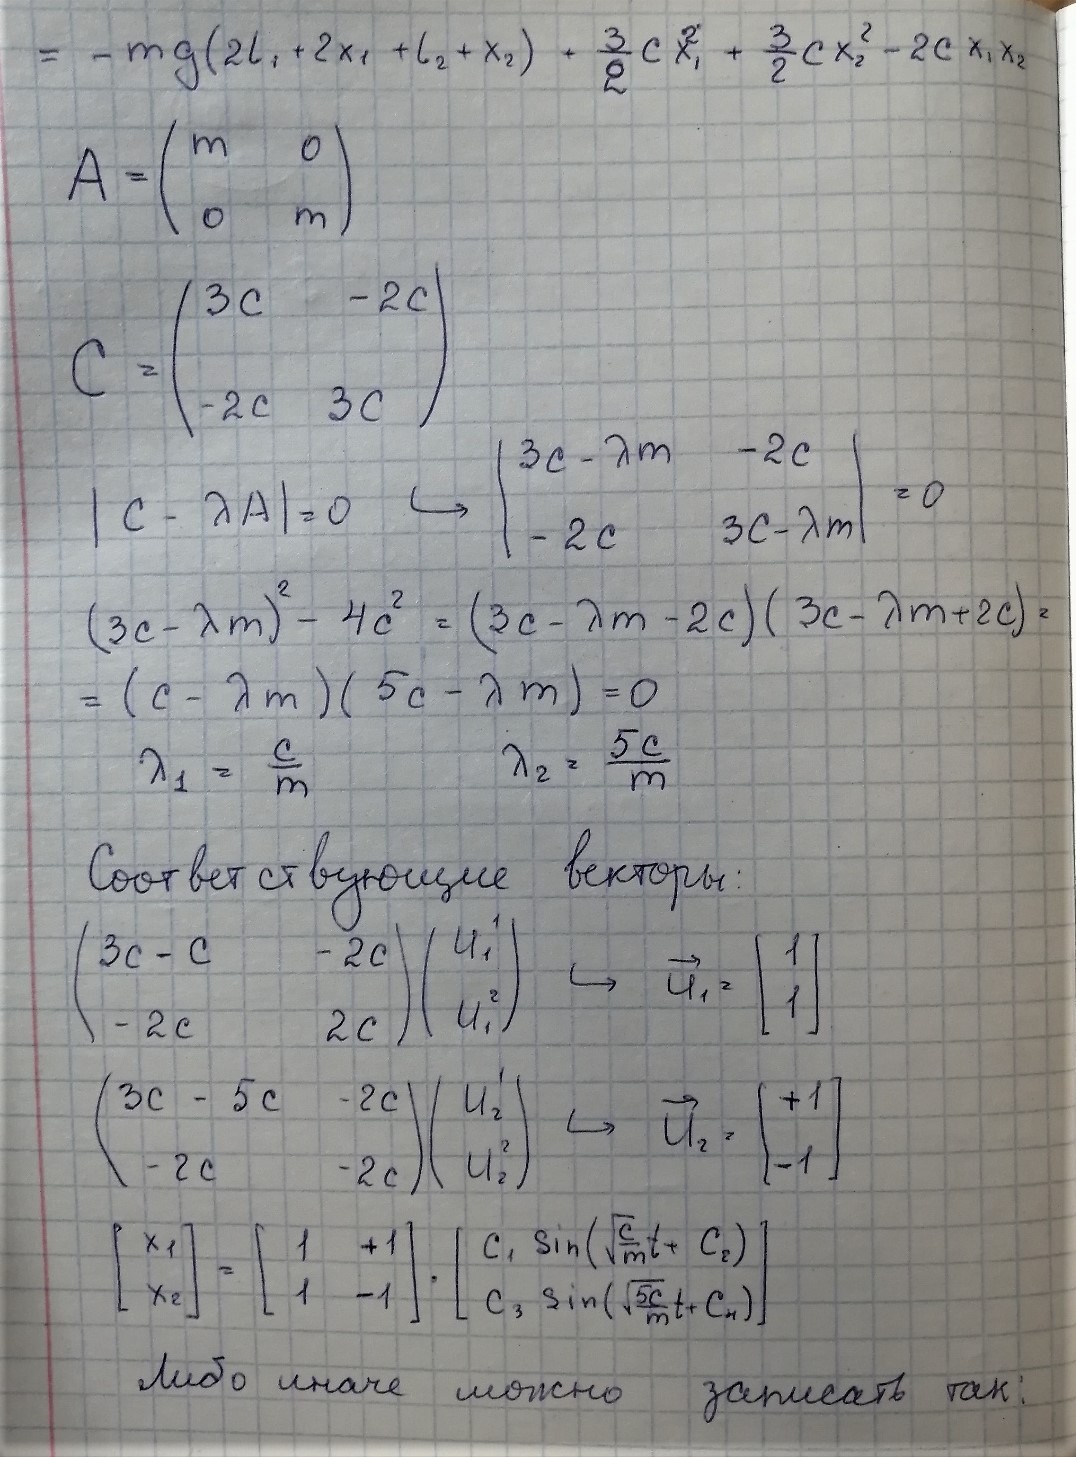 = -mg(2l₁ + 2x₁ + l₂ + x₂) + 3/2 c x₁² + 3/2 c x₂² - 2c x₁x₂
A = (m 0
0 m)
C = (3c -2c
-2c 3c)
|C - λA| = 0 ↪ |3c - λm -2c
-2c 3c - λm| = 0
(3c - λm)² - 4c² = (3c - λm - 2c)(3c - λm + 2c) =
= (c - λm)(5c - λm) = 0
λ₁ = c/m λ₂ = 5c/m
Соответствующие векторы:
(3c - c -2c
-2c 2c) (u₁¹
u₁²) ↪ u⃗₁ = [1
1]
(3c - 5c -2c
-2c -2c) (u₂¹
u₂²) ↪ u⃗₂ = [+1
-1]
[x₁
x₂] = [1 +1
1 -1] · [C₁ sin(√(c/m) t + C₂)
C₃ sin(√(5c/m) t + C₄)]
Либо иначе можно записать так: